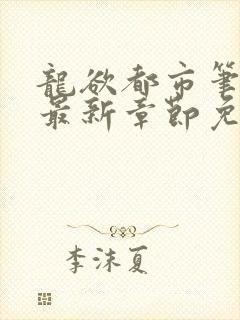 龍欲都市筆
最新章節免
李沫夏